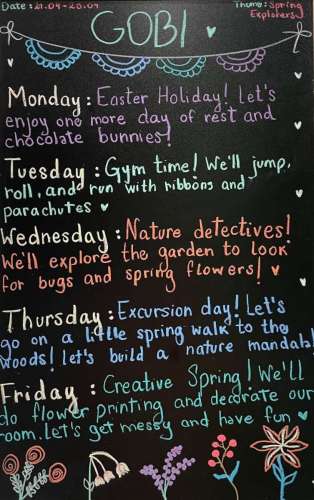 Date: 21.04-25.04
Theme: Spring Explorers
GOBI
Monday: Easter Holiday! Let's
enjoy one more day of rest and
chocolate bunnies!
Tuesday: Gym time! We'll jump,
roll, and run with ribbons and
parachutes
Wednesday: Nature detectives!
We'll explore the garden to look
for bugs and spring flowers!
Thursday: Excursion day! Let's
go on a little spring walk to the
woods! let's build a nature mandala
Friday: Creative Spring! We'll
do flower printing and decorate our
room. Let's get messy and have fun